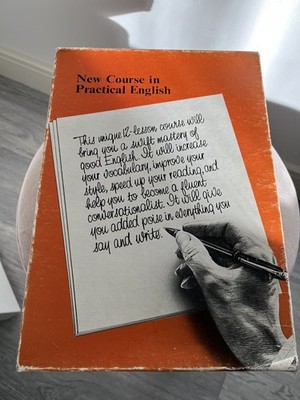 New Course in
Practical English
This unique 12-lesson course will
bring you a swift mastery of
good English. It will increase
your vocabulary, improve your
style, speed up your reading, and
help you to become a fluent
conversationalist. It will give
you added poise in everything you
say and write.